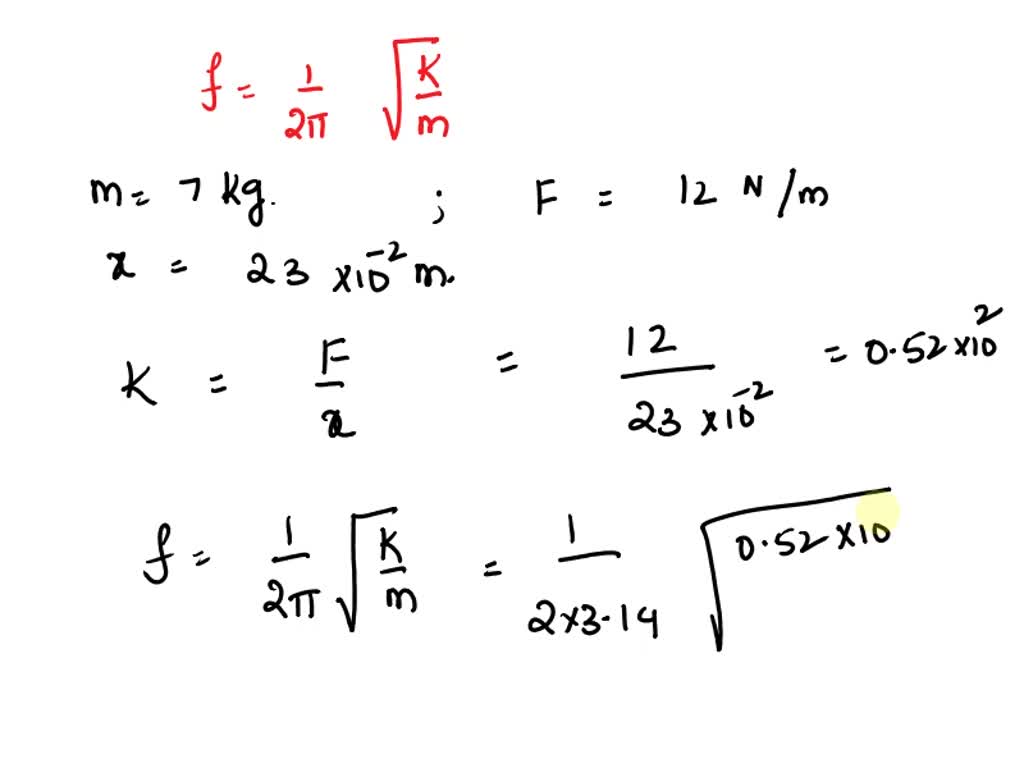 f = 1/2π √K/m
m = 7 kg. ; F = 12 N/m
x = 23 ×10⁻² m.
K = F/x = 12/23 ×10⁻² = 0.52 ×10²
f = 1/2π √K/m = 1/2×3.14 √0.52 ×10